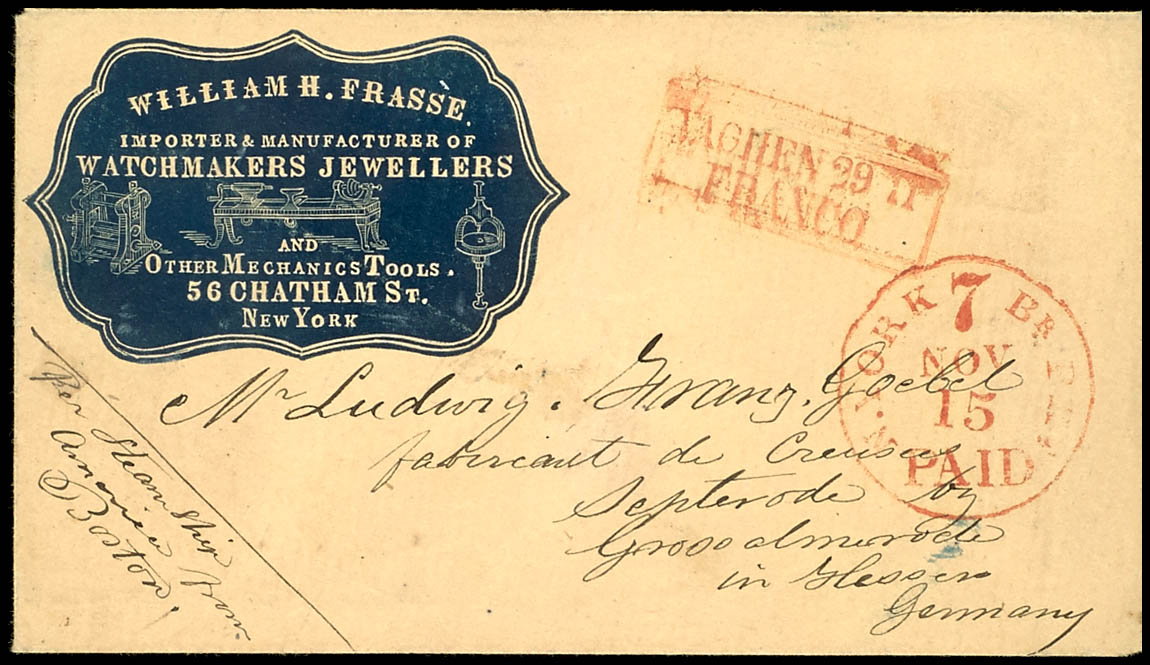 WILLIAM H. FRASSE.
IMPORTER & MANUFACTURER OF
WATCHMAKERS JEWELLERS
AND
OTHER MECHANICS TOOLS.
56 CHATHAM ST.
NEW YORK
AACHEN 29 11
FRANCO
N. YORK 7 BR PKT
NOV
15
PAID
Mr Ludwig. Franz. Goebel
fabricant de Creusets
Septerode by
Grossalmerode
in Hessen
Germany
Per Steam Ship from
America
Boston.